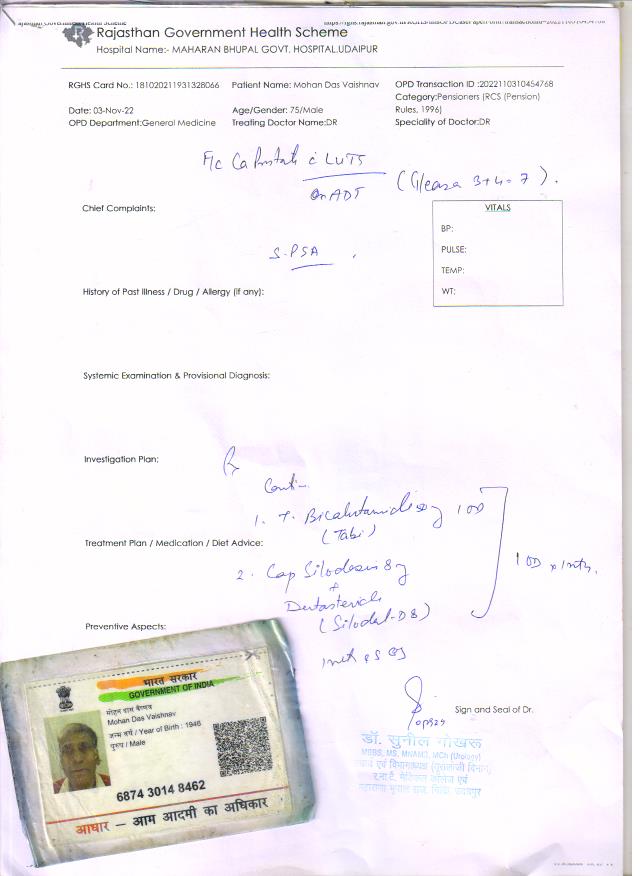 Rajasthan Government Health Scheme
Hospital Name:- MAHARAN BHUPAL GOVT. HOSPITAL,UDAIPUR
RGHS Card No.: 181020211931328066 Patient Name: Mohan Das Vaishnav OPD Transaction ID :2022110310454768
Category:Pensioners (RCS (Pension) Rules, 1996)
Date: 03-Nov-22 Age/Gender: 75/Male
OPD Department:General Medicine Treating Doctor Name:DR Speciality of Doctor:DR
F/c Ca Prostate c LUTS
on ADT (Gleason 3+4=7).
Chief Complaints:
VITALS
BP:
PULSE:
TEMP:
WT:
S. PSA
History of Past Illness / Drug / Allergy (if any):
Systemic Examination & Provisional Diagnosis:
Investigation Plan:
Rx
Conti-
1. T. Bicalutamide 1 OD
(Tabi)
Treatment Plan / Medication / Diet Advice:
2. Cap Silodosin 8
+
Dutasteride
(Silodal-D8)
1 OD x 1 mth.
Preventive Aspects:
Sign and Seal of Dr.
डॉ. सुनील गोखरू
MBBS, MS, MNAMS, MCh (Urology)
भारत सरकार
GOVERNMENT OF INDIA
मोहन दास वैष्णव
Mohan Das Vaishnav
जन्म वर्ष / Year of Birth : 1946
पुरुष / Male
6874 3014 8462
आधार – आम आदमी का अधिकार